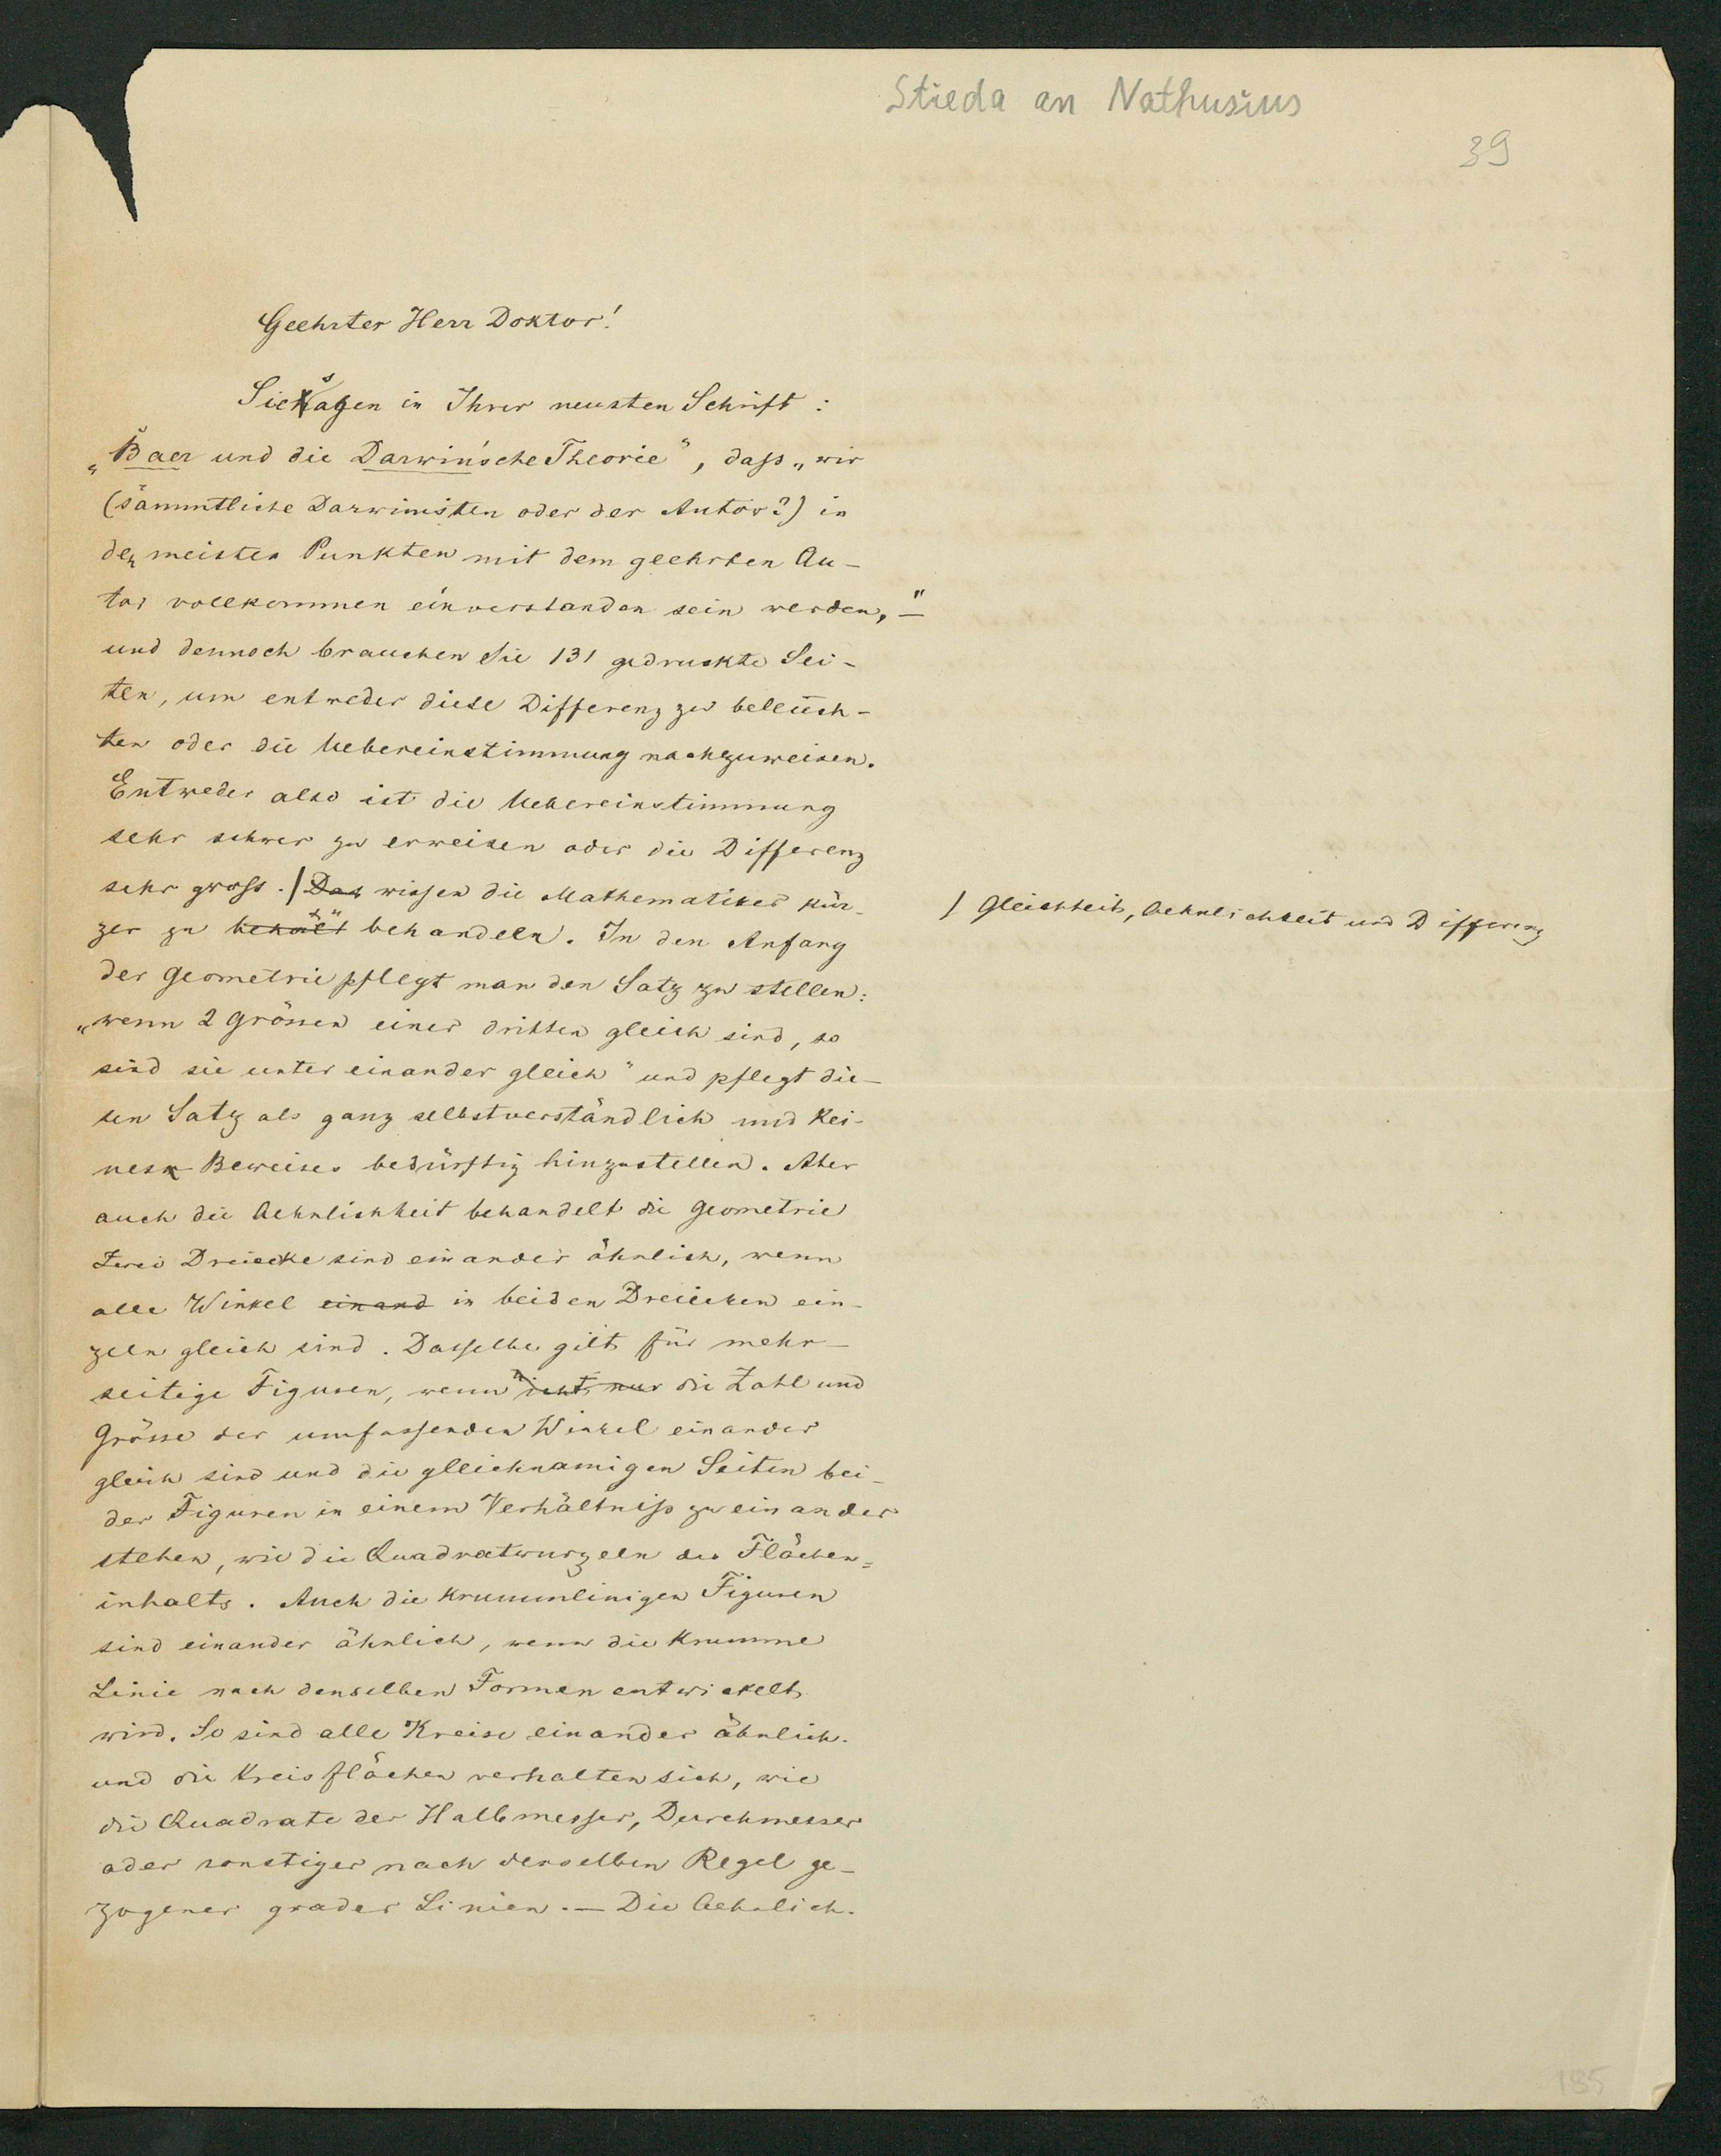 Stieda an Nathusius
39
Geehrter Herr Doktor!
Sie sagen in Ihrer neusten Schrift:
„Baer und die Darwin'sche Theorie", dass „wir
(sämmtliche Darwinisten oder der Autor?) in
den meisten Punkten mit dem geehrten Au-
tor vollkommen einverstanden sein werden," –
und dennoch brauchen Sie 131 gedruckte Sei-
ten, um entweder diese Differenz zu beleuch-
ten oder die Uebereinstimmung nachzuweisen.
Entweder also ist die Uebereinstimmung
sehr schwer zu erweisen oder die Differenz
sehr gross. / Das wissen die Mathematiker kür-
/ Gleichheit, Aehnlichkeit und Differenz
zer zu behandeln. In den Anfang
der Geometrie pflegt man den Satz zu stellen:
„wenn 2 Grössen einer dritten gleich sind, so
sind sie unter einander gleich" und pflegt die-
sen Satz als ganz selbstverständlich und kei-
nes Beweises bedürftig hinzustellen. Aber
auch die Aehnlichkeit behandelt die Geometrie
Zwei Dreiecke sind einander ähnlich, wenn
alle Winkel einand in beiden Dreiecken ein-
zeln gleich sind. Dasselbe gilt für mehr-
seitige Figuren, wenn nicht nur die Zahl und
Grösse der umfassenden Winkel einander
gleich sind und die gleichnamigen Seiten bei-
der Figuren in einem Verhältniss zu einander
stehen, wie die Quadratwurzeln des Flächen=
inhalts. Auch die krummlinigen Figuren
sind einander ähnlich, wenn die krumme
Linie nach denselben Formen entwickelt
wird. So sind alle Kreise einander ähnlich.
und die Kreisflächen verhalten sich, wie
die Quadrate der Halbmesser, Durchmesser
oder sonstiger nach derselben Regel ge-
zogener grader Linien. – Die Aehnlich-
185